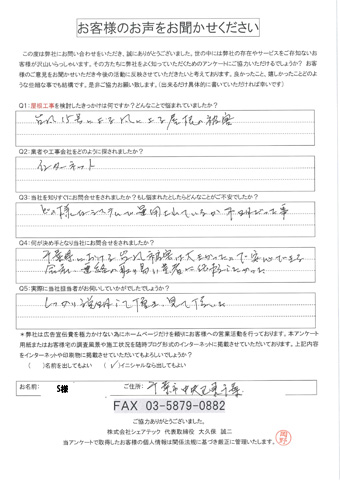 お客様のお声をお聞かせください
この度は弊社にお問い合わせをいただき、誠にありがとうございました。世の中には弊社の存在やサービスをご存知ないお
客様が沢山いらっしゃいます。その方たちに弊社をよく知っていただくためのアンケートにご協力いただけるでしょうか？お
客様のご意見をお聞かせいただき今後の活動に反映させていただきたいと考えております。良かったこと、嬉しかったことどのよ
うな些細な事でも結構です。是非ご協力お願い致します。（出来るだけ具体的に書いていただければ幸いです）
Q1：屋根工事を検討したきっかけは何ですか？どんなことで悩まれていましたか？
台風15号による風による屋根の被害
Q2：業者や工事会社をどのように探されましたか？
インターネット
Q3：当社を知りすぐにお問合せをされましたか？もし悩まれたとしたらどんなことがご不安でしたか？
どの様なシステムで運用されているか
Q4：何が決め手となり当社にお問合せをされましたか？
千葉県における台風被害は大きかったので
Q5：実際に当社担当者にお伺いしていかがでしたでしょうか？
しっかり説明して頂き、見て
＊弊社は広告宣伝費を極力かけない為にホームページだけを頼りにお客様への営業活動を行っております。本アンケート
用紙またはお客様宅の調査風景や施工状況を随時ブログ形式のインターネットに掲載させていただいております。上記内容
をインターネットや印刷物に掲載させていただいてもよろしいでしょうか？
（　）名前を出してもよい　（✓）イニシャルなら出してもよい
お名前：　S様　ご住所：千葉市中央区
FAX 03-5879-0882
ご協力ありがとうございました。
株式会社シェアテック　代表取締役　大久保　誠二
当アンケートで取得したお客様の個人情報は関係法規に基づき厳正に管理いたします。